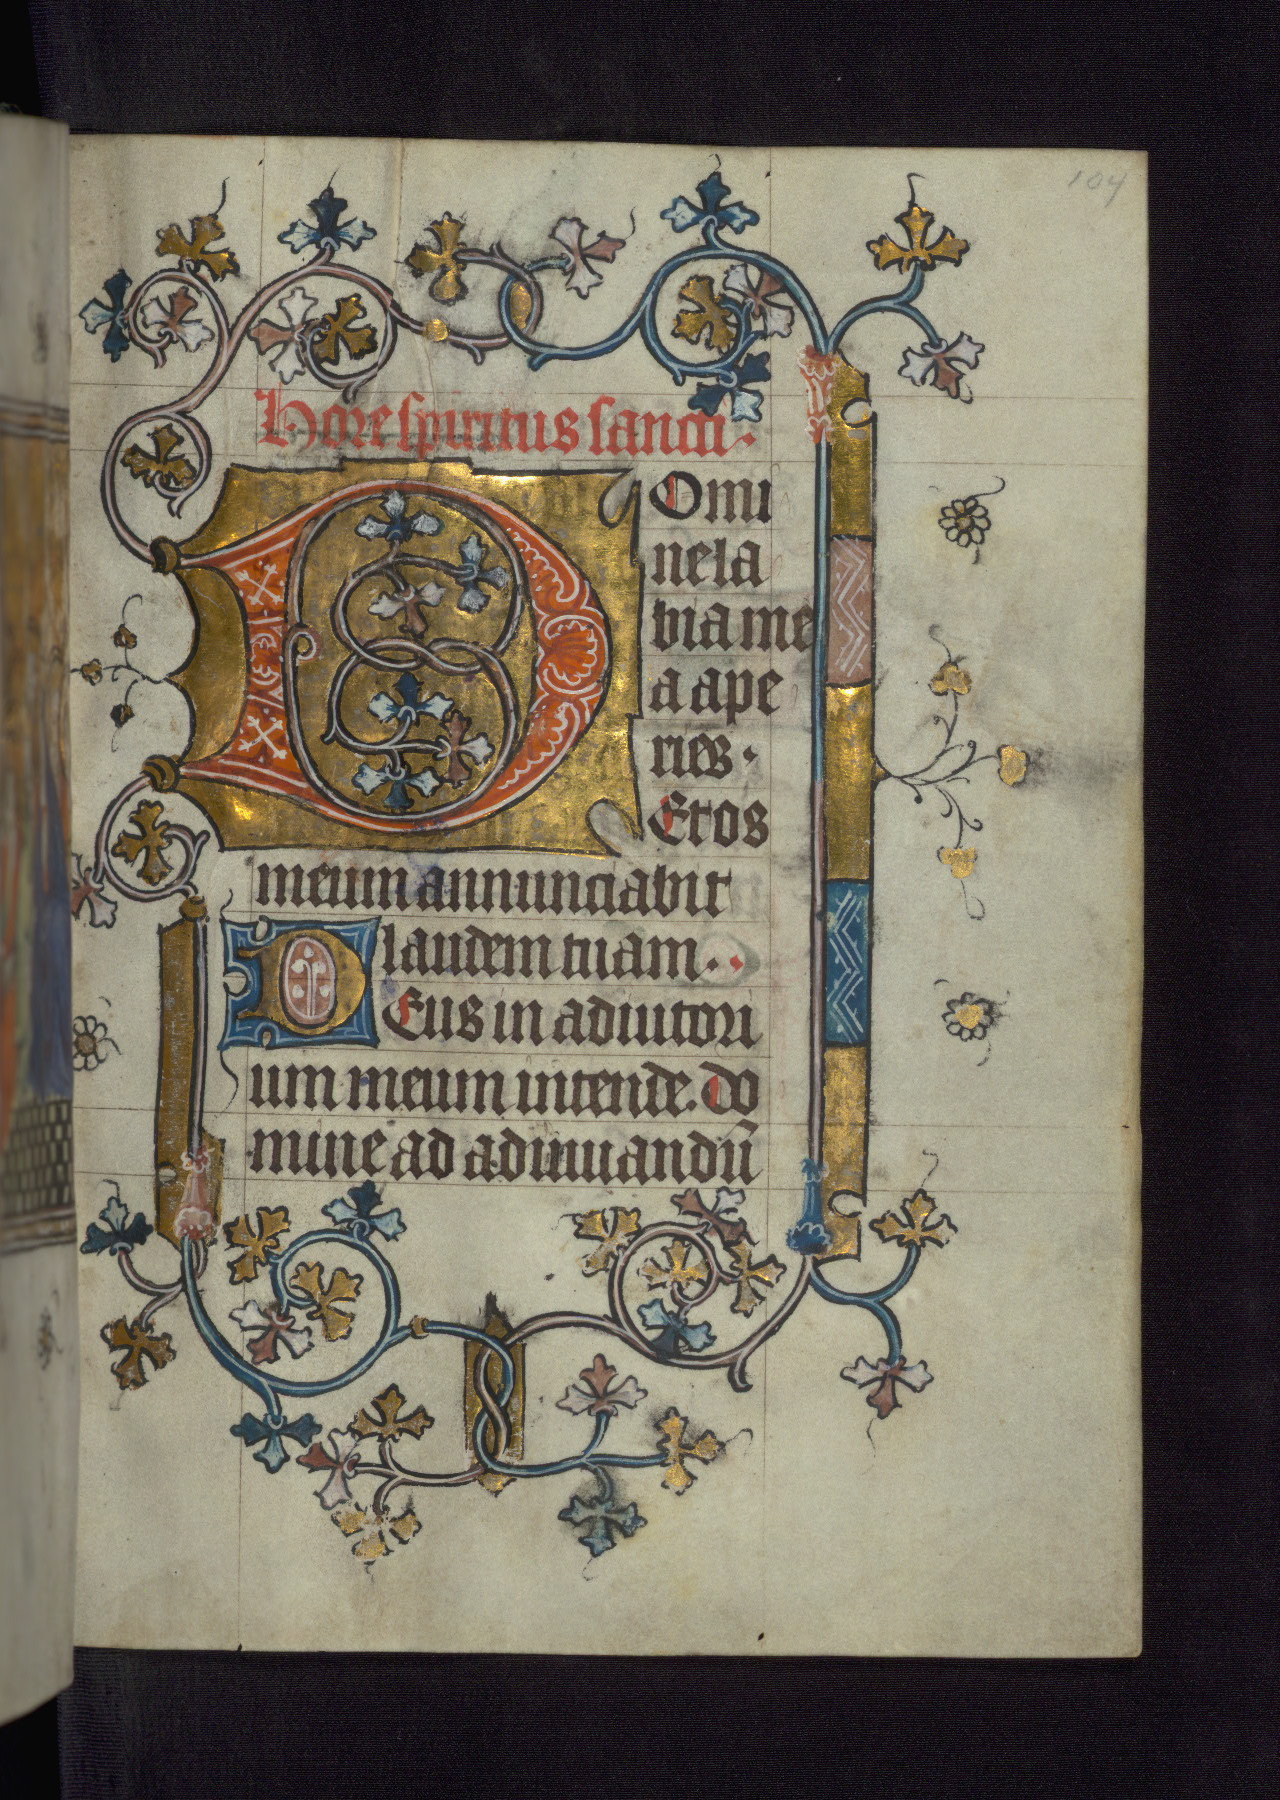 104
Hore spiritus sancti.
DOmi
ne la
bia me
a ape
ries.
Et os
meum annunciabit
laudem tuam.
DEus in adiutori
um meum intende. do
mine ad adiuuandū